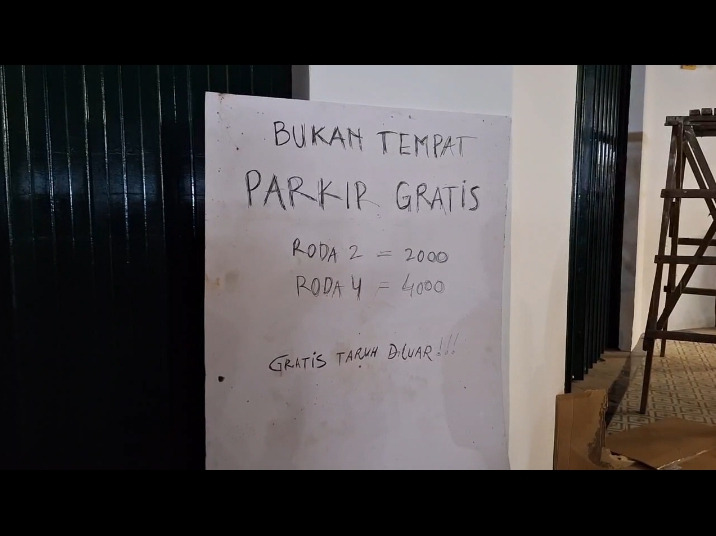 BUKAN TEMPAT
PARKIR GRATiS
RODA 2 = 2000
RODA 4 = 4000
GRATiS TARUH DiLUAR!!!